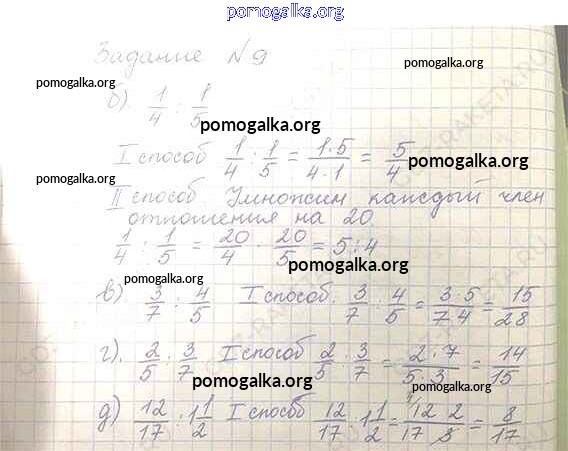 pomogalka.org
Задание №9
pomogalka.org
pomogalka.org
б). 1/4 : 1/5
pomogalka.org
I способ 1/4 : 1/5 = 1·5/4·1 = 5/4
pomogalka.org
pomogalka.org
II способ. Умножим каждый член
отношения на 20
1/4 : 1/5 = 20/4 : 20/5 = 5:4
pomogalka.org
pomogalka.org
в) 3/7 : 4/5 I способ. 3/7 : 4/5 = 3 5/7 4 = 15/28
pomogalka.org
г). 2/5 : 3/7 I способ 2/5 : 3/7 = 2·7/5·3 = 14/15
pomogalka.org
д) 12/17 : 1 1/2 I способ 12/17 : 1 1/2 = 12 2/17 3 = 8/17